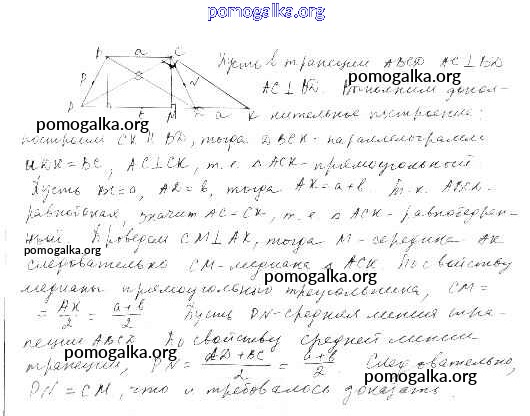 pomogalka.org
B a C
Пусть в трапеции ABCD AC ⊥ BD
AC ⊥ BD. Выполним допол-
pomogalka.org
A b M D a K нительное построение:
pomogalka.org
построим CK || BD, тогда DBCK - параллелограмм
pomogalka.org
и DK = BC, AC ⊥ CK, т.е. △ ACK - прямоугольный
Пусть BC = a, AD = b, тогда AK = a + b. Т.к. ABCD -
pomogalka.org
равнобокая, значит AC = CK, т.е. △ ACK - равнобедрен-
ный Проведем CM ⊥ AK, тогда M - середина AK
pomogalka.org
следовательно CM - медиана △ ACK По свойству
pomogalka.org
медианы прямоугольного треугольника, CM =
= AK/2 = a+b/2 Пусть PN - средняя линия тра-
pomogalka.org
пеции ABCD По свойству средней линии
pomogalka.org
трапеции, PN = AD + BC/2 = a+b/2. Следовательно,
PN = CM, что и требовалось доказать.
pomogalka.org